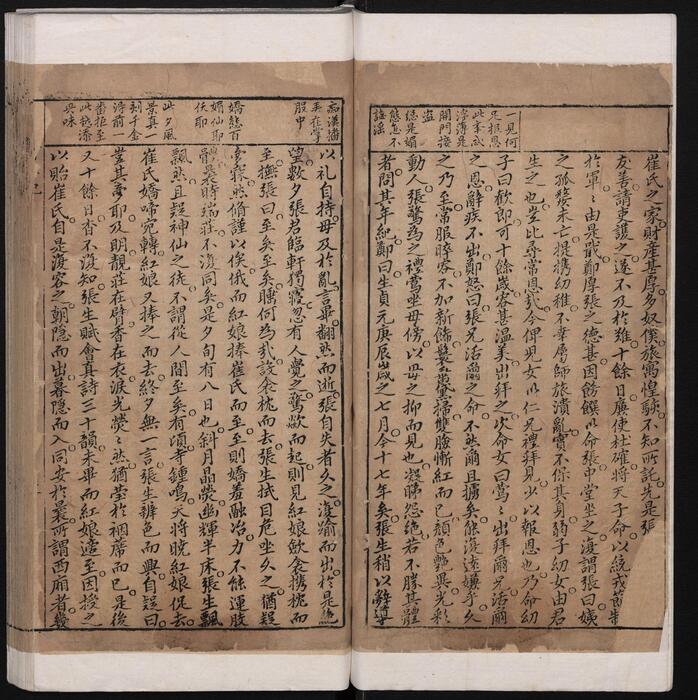 一見何
足報恩
此事或
涉薄是
開門揖
盜
總是媚
態怎不
謠淫
崔氏之家財產甚厚多奴僕旅寓惶駭不知所託先是張
友善請吏護之遂不及於難十餘日廉使杜確將天子命以統戎節
於軍軍由是戢鄭厚張之德甚因飭饌以命張中堂坐之復謂張曰姨
之孤嫠未亡提攜幼稚不幸屬師旅潰亂實不保其身弱子幼女由君
生之也豈比尋常恩哉今俾兒女以仁兄禮拜見少以報恩也乃命幼
子曰歡郎可十餘歲容甚溫美出拜之次命女曰鶯〻出拜爾兄活爾
之恩辭疾不出鄭怒曰張兄活爾之命不然爾且擄矣能復遠嫌乎久
之乃至常服睟容不加新飾鬟黛掃雙臉慚紅而已顏色艷異光彩
動人張驚為之禮鶯坐母傍以母之抑而見也凝睇怨絕若不勝其體
者問其年紀鄭曰生貞元庚辰歲之七月今十七年矣張生稍以辭導
痴漢猶
未在掌
股中
嬌態百
媚仙耶
妖耶
此夕風
景真一
刻千金
詩前一
番拒至
此越添
興味
以禮自持毋及於亂言畢翻然而逝張自失者久之復踰而出於是絕
望數夕張君臨軒獨寢忽有人覺之驚欻而起則見紅娘歛衾攜枕而
至撫張曰至矣至矣睡何為哉設衾枕而去張生拭目危坐久之猶疑
夢寐然脩謹以俟俄而紅娘捧崔氏而至至則嬌羞融冶力不能運肢
體曩時端莊不復同矣是夕旬有八日也斜月晶熒幽輝半床張生飄
飄然且疑神仙之徒不謂從人間至矣有頃寺鍾鳴天將曉紅娘促去
崔氏嬌啼宛轉紅娘又捧之而去終夕無一言張生辨色而興自疑曰
豈其夢耶及明靚莊在臂香在衣淚光熒〻然猶瑩於裀蓆而已是後
又十餘日杳不復知張生賦會真詩三十韻未畢而紅娘適至因授之
以貽崔氏自是復容之朝隱而出暮隱而入同安於曩所謂西廂者幾